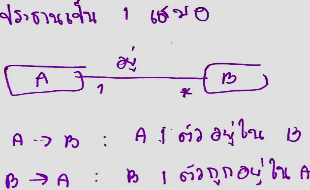 ประธานเป็น 1 เสมอ
อยู่
A B
1 *
A → B : A 1 ตัว อยู่ใน B
B → A : B 1 ตัวถูกอยู่ใน A